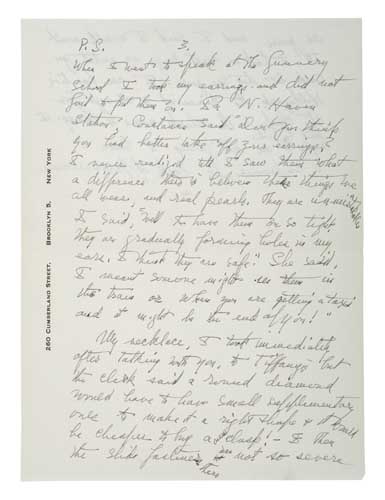 P.S. 3.
When I went to speak at the Gunnery
School I took my earrings and did not
fail to put them in! In N. Haven
Station, Constance said "Don't you think
you had better take off your earrings?"
I never realized till I saw them what
a difference there is between the things we
all wear, and real pearls. They are
I said, "Well to have them on so tight
they are gradually forming holes in my
ears. I think they are safe." She said,
I meant someone might see them in
the train or when you are getting a taxi
and it might be the end of you!"
My necklace, I took immediately
after talking with you, to Tiffany's but
the clerk said a round diamond
would have to have small supplementary
ones to make it a right shape & it would
be cheaper to buy a clasp! – I then
the slide not so severe
260 CUMBERLAND STREET, BROOKLYN 5, NEW YORK